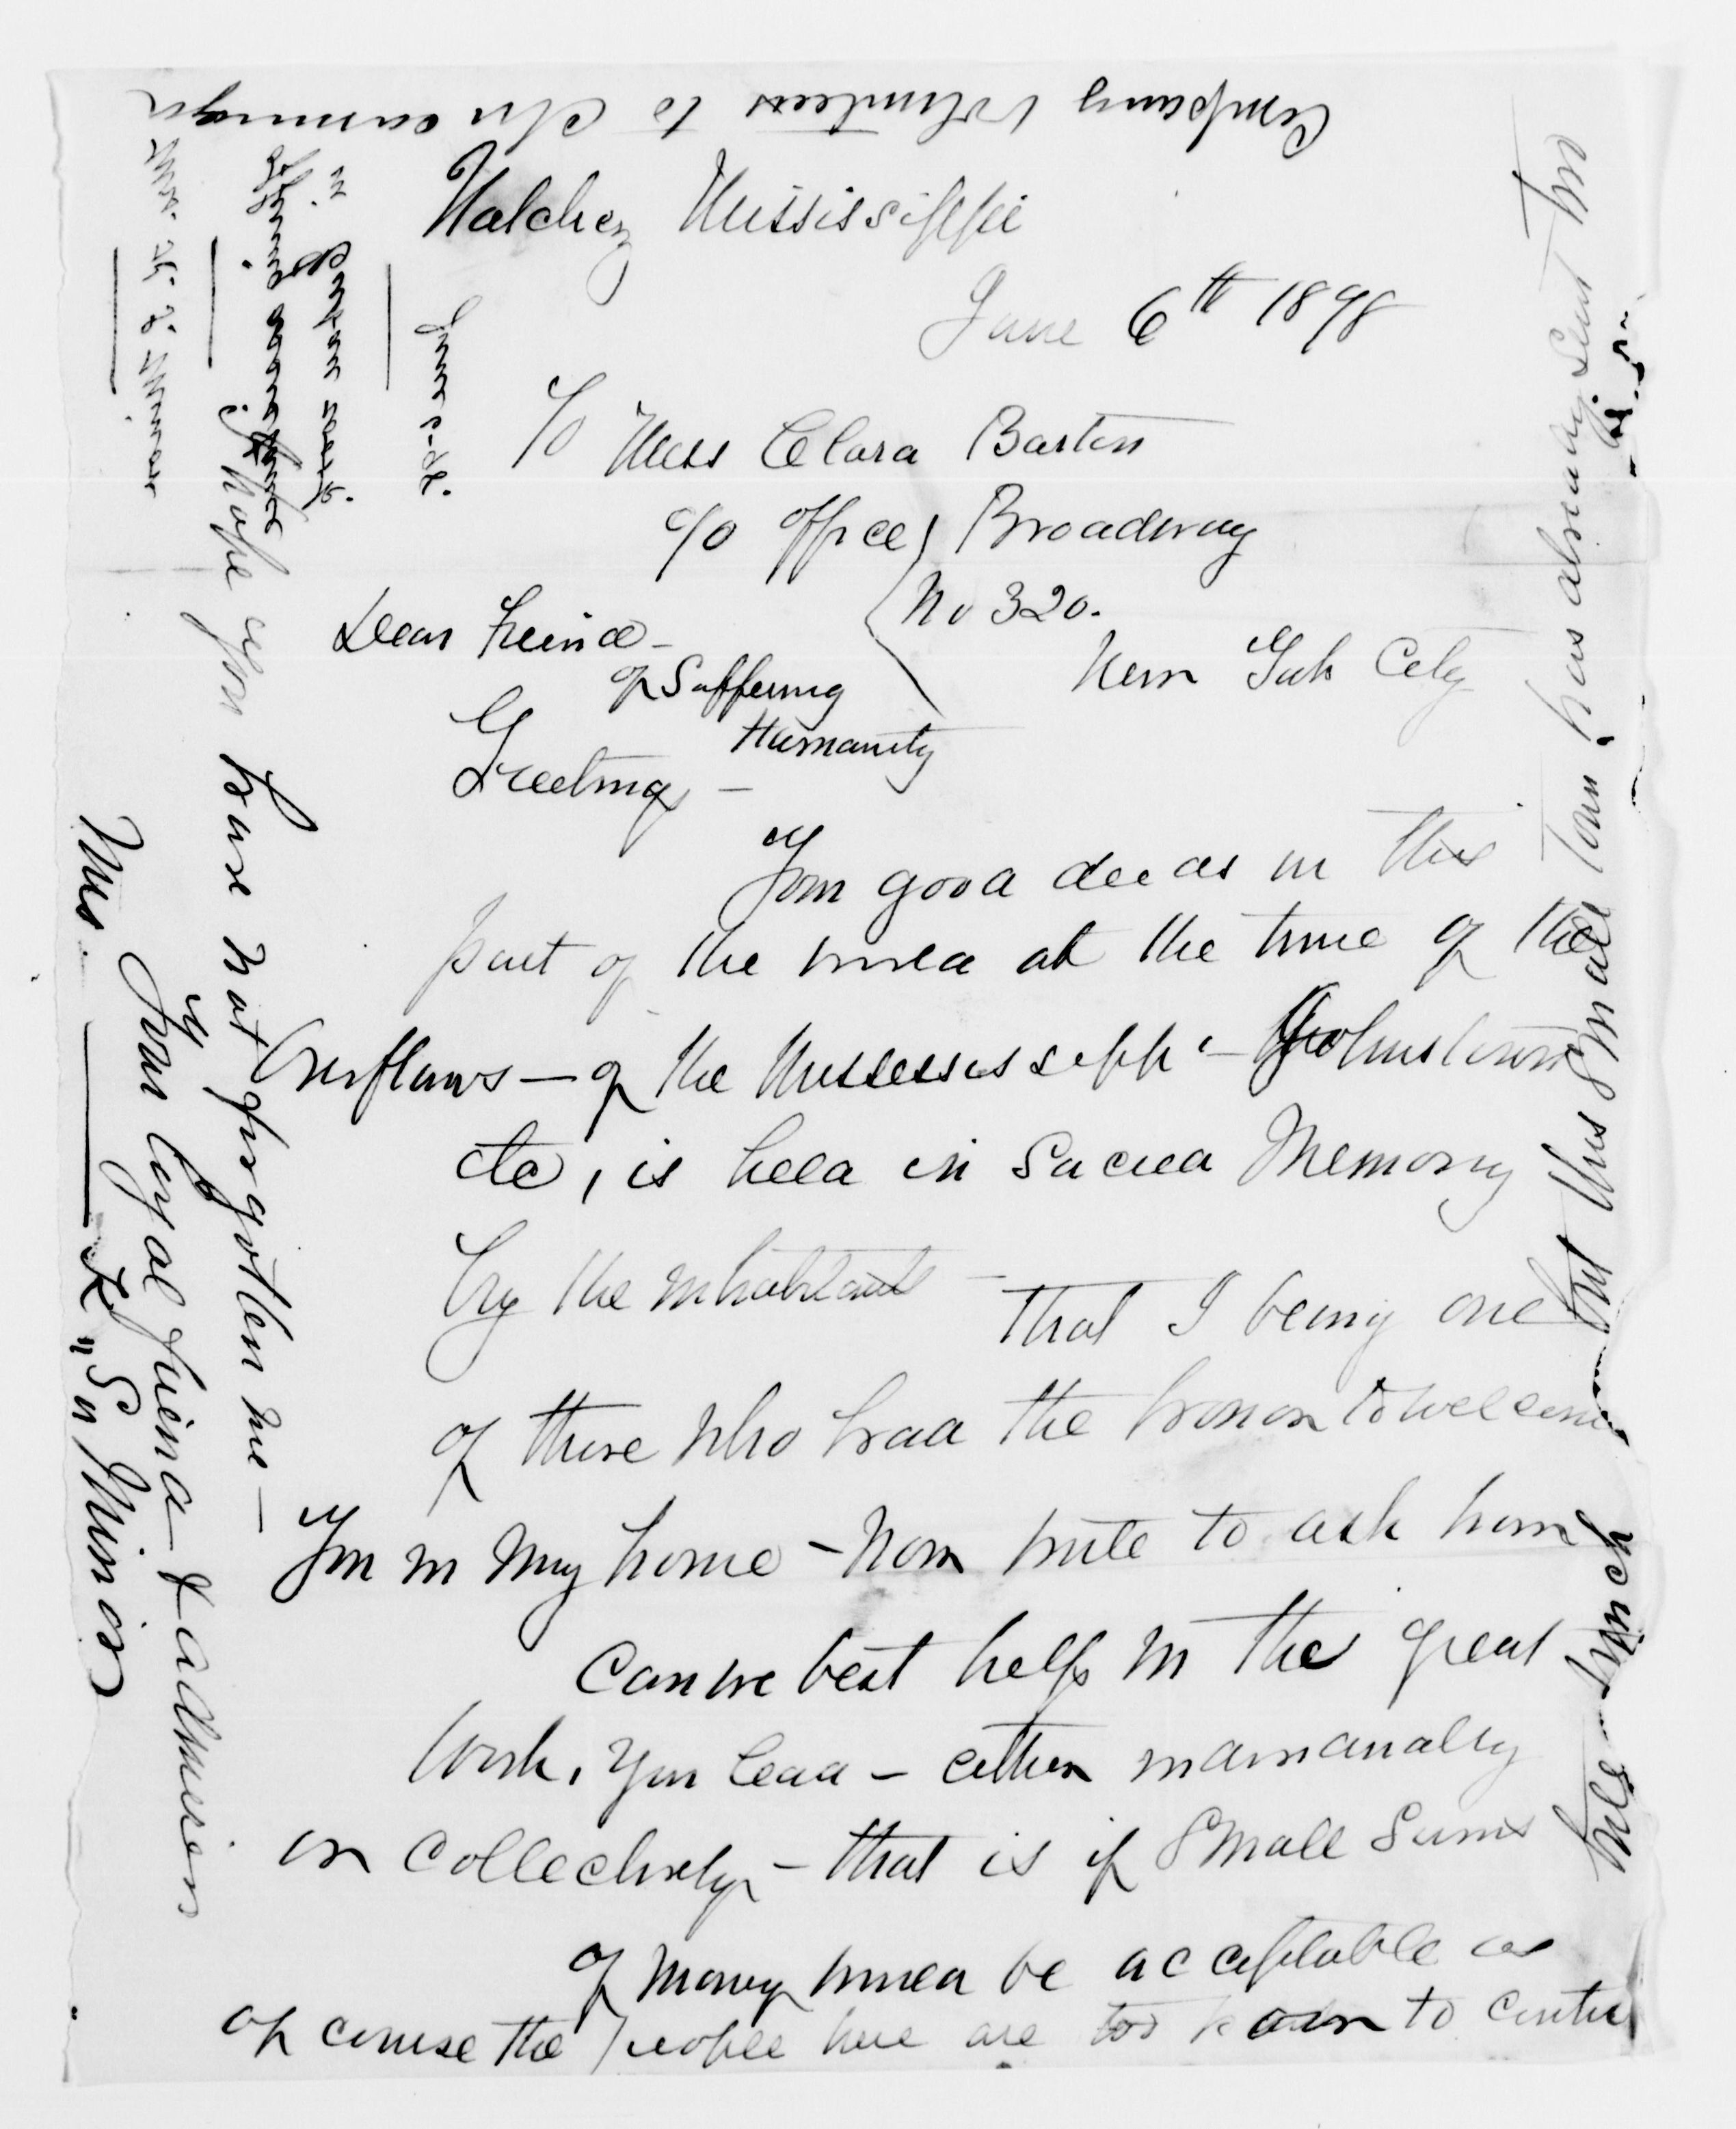 Natchez Mississippi
June 6th 1898
To Miss Clara Barton
c/o office Broadway
No 320.
New York City
Dear Freind -
of Suffering
Humanity
Greeting -
Your good deeds in this
part of the world at the time of the
Overflows - of the Mississippi - Johnstown
etc, is held in Sacred Memory
by the inhabitants - that I being one
of those who had the honor to welcome
You in my home - now write to ask how
can we best help in the great
Work, you lead - either
or Collectively - that is if Small Sums
of money would be acceptable as
of course the people here are too to contri
bute much
but this Small Town, has already Sent Two
Company Volunteers to
I Hope you have not forgotten me -
Your loyal freind & admirer
Mrs K. S. Minor
June 6-98.
Mrs. K. S. Minor